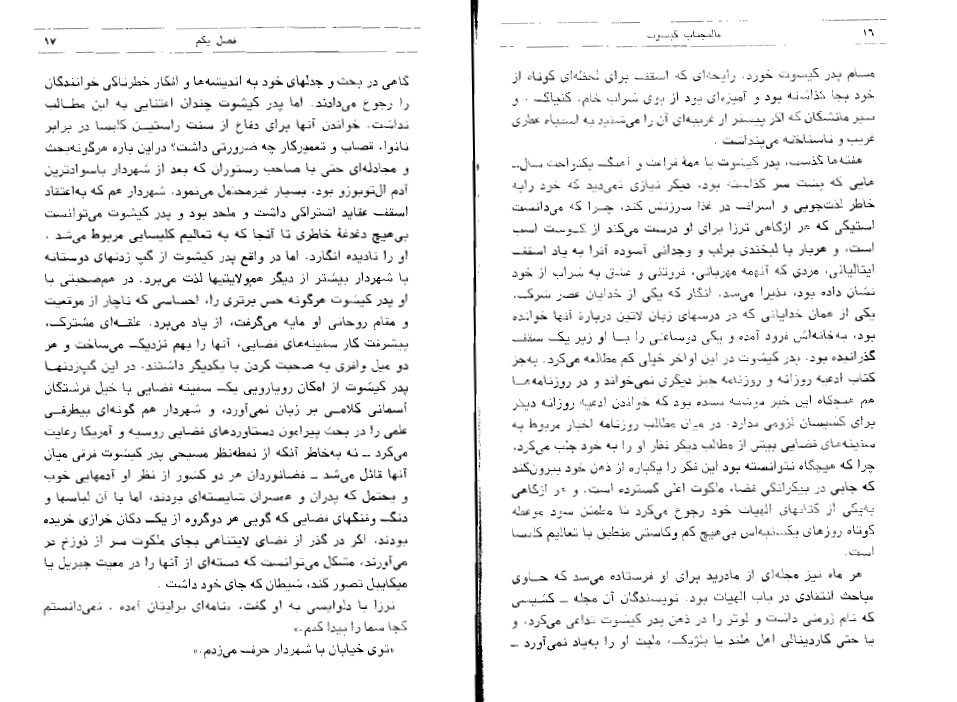 ۱۶
عالیجناب کیشوت
مشام پدر کیشوت خورد. رایحه‌ای که اسقف برای لحظه‌ای کوتاه از
خود بجا گذاشته بود و آمیزه‌ای بود از بوی شراب خام، کنیاک، و
پنیر مانشگان که اگر پیشتر از غریبه‌ای آن را می‌شنید به اشتباه عطری
غریب و ناشناخته می‌پنداشت.
هفته‌ها گذشت، پدر کیشوت با همهٔ فراغت و آهنگ یکنواخت سال‌ـ
هایی که پشت سر گذاشته بود، دیگر نیازی نمی‌دید که خود رابه
خاطر لذت‌جویی و اسراف در غذا سرزنش کند، چرا که می‌دانست
استیکی که هر ازگاهی ترزا برای او درست می‌کند از گوشت اسب
است، و هربار با لبخندی برلب و وجدانی آسوده آنرا به یاد اسقف
ایتالیائی، مردی که آنهمه مهربانی، فروتنی و عشق به شراب از خود
نشان داده بود، پذیرا می‌شد. انگار که یکی از خدایان عصر شرک،
یکی از همان خدایانی که در درسهای زبان لاتین دربارهٔ آنها خوانده
بود، به‌خانه‌اش فرود آمده و یکی دوساعتی را با او زیر یک سقف
گذرانیده بود. پدر کیشوت در این اواخر خیلی کم مطالعه می‌کرد. به‌جز
کتاب ادعیه روزانه و روزنامه چیز دیگری نمی‌خواند و در روزنامه‌ها
هم هیچگاه این خبر نوشته نشده بود که خواندن ادعیه روزانه دیگر
برای کشیشان لزومی ندارد. در میان مطالب روزنامه اخبار مربوط به
سفینه‌های فضایی بیش از مطالب دیگر نظر او را به خود جلب می‌کرد،
چرا که هیچگاه نتوانسته بود این فکر را یکباره از ذهن خود بیرون‌کند
که جایی در بیکرانگی فضا، ملکوت اعلی گسترده است. و هر ازگاهی
به‌یکی از کتابهای الهیات خود رجوع می‌کرد تا مطمئن شود موعظه
کوتاه روزهای یک‌شنبه‌اش بی‌هیچ کم وکاستی منطبق با تعالیم کلیسا
است.
هر ماه نیز مجله‌ای از مادرید برای او فرستاده می‌شد که حاوی
مباحث انتقادی در باب الهیات بود. نویسندگان آن مجله ـ کشیشی
که نام ژرمنی داشت و لوتر را در ذهن پدر کیشوت تداعی می‌کرد، و
یا حتی کاردینالی اهل هلند یا بلژیک، ملیت او را به‌یاد نمی‌آورد ـ
فصل یکم
۱۷
گاهی در بحث و جدلهای خود به اندیشه‌ها و افکار خطرناکی خوانندگان
را رجوع می‌دادند. اما پدر کیشوت چندان اعتنایی به این مطالب
نداشت. خواندن آنها برای دفاع از سنت راستین کلیسا در برابر
نانوا، قصاب و تعمیرکار چه ضرورتی داشت؟ دراین باره هرگونه‌بحث
و مجادله‌ای حتی با صاحب رستوران که بعد از شهردار باسوادترین
آدم ال‌توبوزو بود، بسیار غیرمحتمل می‌نمود. شهردار هم که به‌اعتقاد
اسقف عقاید اشتراکی داشت و ملحد بود و پدر کیشوت می‌توانست
بی‌هیچ دغدغهٔ خاطری تا آنجا که به تعالیم کلیسایی مربوط می‌شد،
او را نادیده انگارد. اما در واقع پدر کیشوت از گپ زدنهای دوستانه
با شهردار بیشتر از دیگر هم‌ولایتیها لذت می‌برد. در هم‌صحبتی با
او پدر کیشوت هرگونه حس برتری را، احساسی که ناچار از موقعیت
و مقام روحانی او مایه می‌گرفت، از یاد می‌برد. علقه‌ای مشترک،
پیشرفت کار سفینه‌های فضایی، آنها را بهم نزدیک می‌ساخت و هر
دو میل وافری به صحبت کردن با یکدیگر داشتند. در این گپ‌زدنها
پدر کیشوت از امکان رویارویی یک سفینه فضایی با خیل فرشتگان
آسمانی کلامی بر زبان نمی‌آورد، و شهردار هم گونه‌ای بیطرفی
علمی را در بحث پیرامون دستاوردهای فضایی روسیه و آمریکا رعایت
می‌کرد ـ نه به‌خاطر آنکه از نقطه‌نظر مسیحی پدر کیشوت فرقی میان
آنها قائل می‌شد ـ فضانوردان هر دو کشور از نظر او آدمهایی خوب
و بحتمل که پدران و همسران شایسته‌ای بودند، اما با آن لباسها و
دنگ وفنگهای فضایی که گویی هر دوگروه از یک دکان خرازی خریده
بودند، اگر در گذر از فضای لایتناهی بجای ملکوت سر از دوزخ در
می‌آورند، مشکل می‌توانست که دسته‌ای از آنها را در معیت جبریل یا
میکاییل تصور کند، شیطان که جای خود داشت.
ترزا با دلواپسی به او گفت، «نامه‌ای برایتان آمده. نمی‌دانستم
کجا شما را پیدا کنم.»
«توی خیابان با شهردار حرف می‌زدم.»